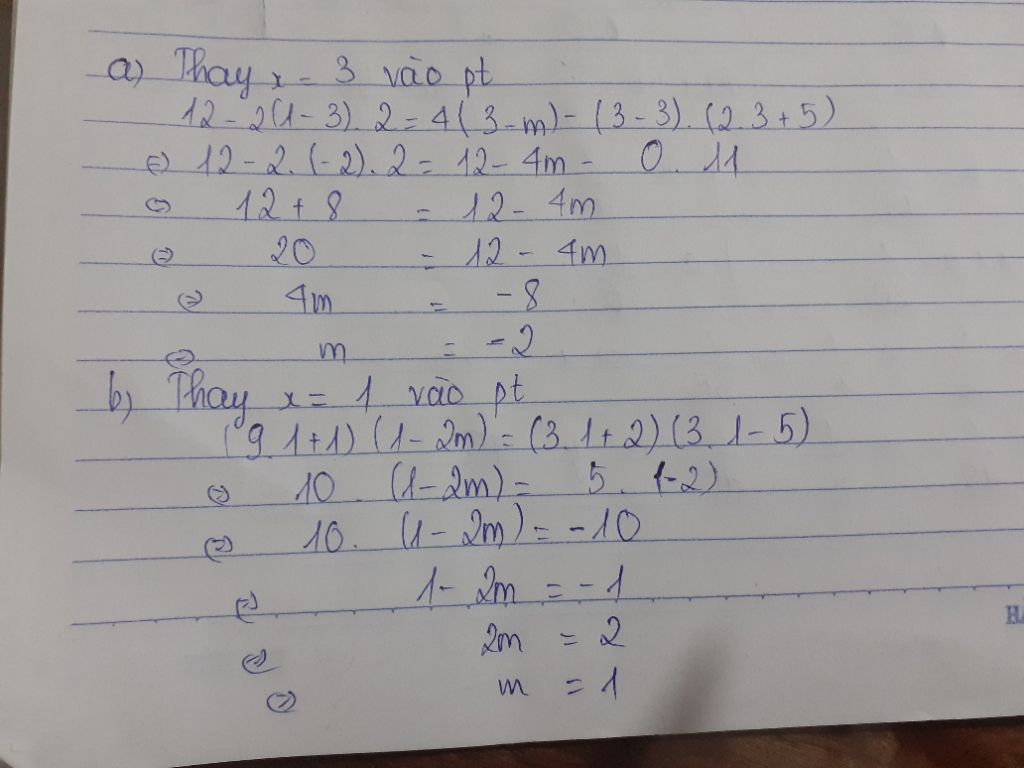 a) Thay x = 3 vào pt
12 - 2(1 - 3). 2 = 4(3 - m) - (3 - 3). (2.3 + 5)
⇔ 12 - 2. (-2). 2 = 12 - 4m - 0. 11
⇔ 12 + 8 = 12 - 4m
⇔ 20 = 12 - 4m
⇔ 4m = -8
⇔ m = -2
b) Thay x = 1 vào pt
(9.1 + 1) (1 - 2m) = (3.1 + 2) (3.1 - 5)
⇔ 10. (1 - 2m) = 5. (-2)
⇔ 10. (1 - 2m) = -10
⇔ 1 - 2m = -1
⇔ 2m = 2
⇔ m = 1